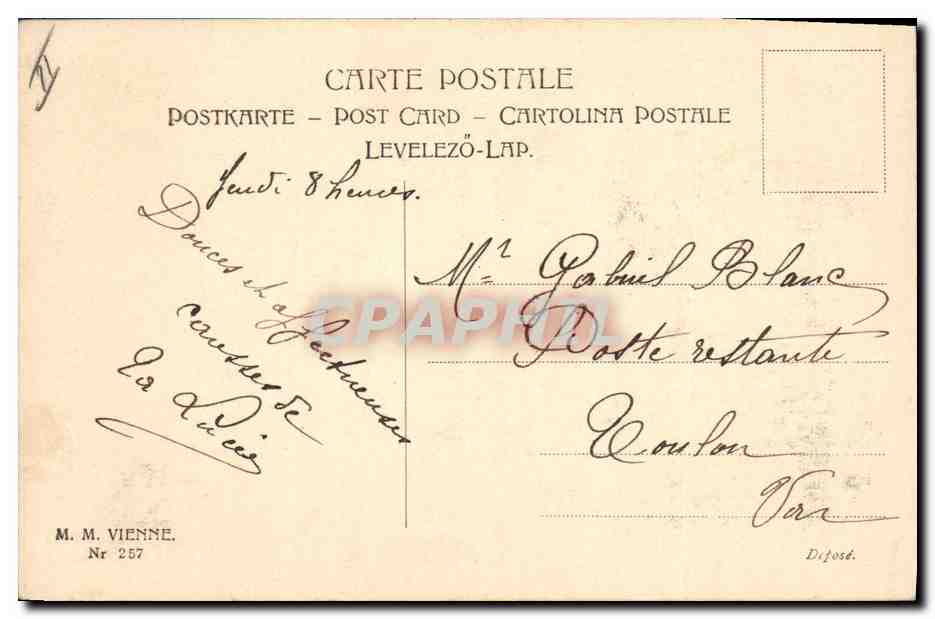 CARTE POSTALE
POSTKARTE – POST CARD – CARTOLINA POSTALE
LEVELEZŐ-LAP.
Jeudi 8 heures.
Douces et affectueuses
caresses de
Ta Lucie
Mr Gabriel Blanc
Poste restante
Toulon
Var
CPAPHIL
M. M. VIENNE.
Nr 257
Déposé.